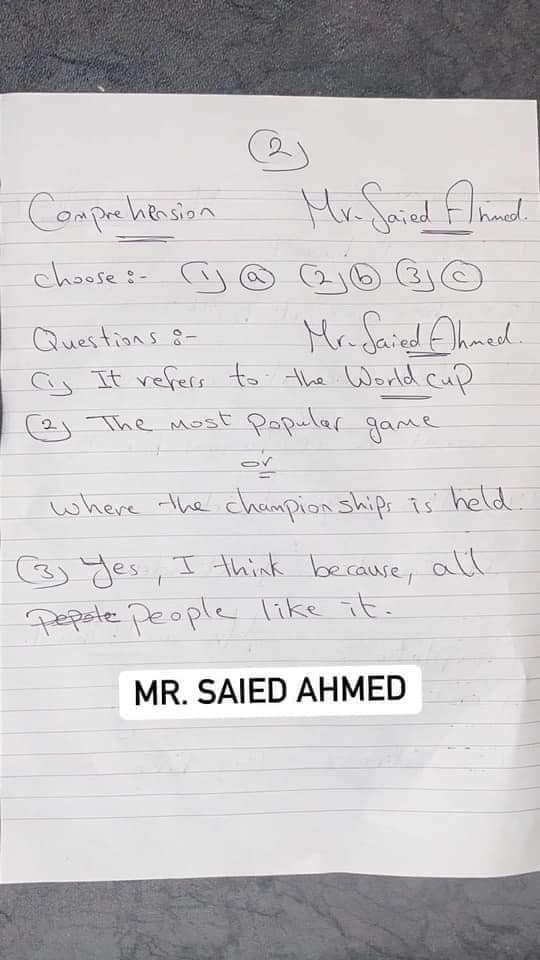 (2)
Comprehension Mr. Saied Ahmed.
choose :- (1) a (2) b (3) c
Questions :- Mr. Saied Ahmed.
(1) It refers to the World cup
(2) The most popular game
or
where the championships is held.
(3) Yes, I think because, all
Pepole People like it.
MR. SAIED AHMED